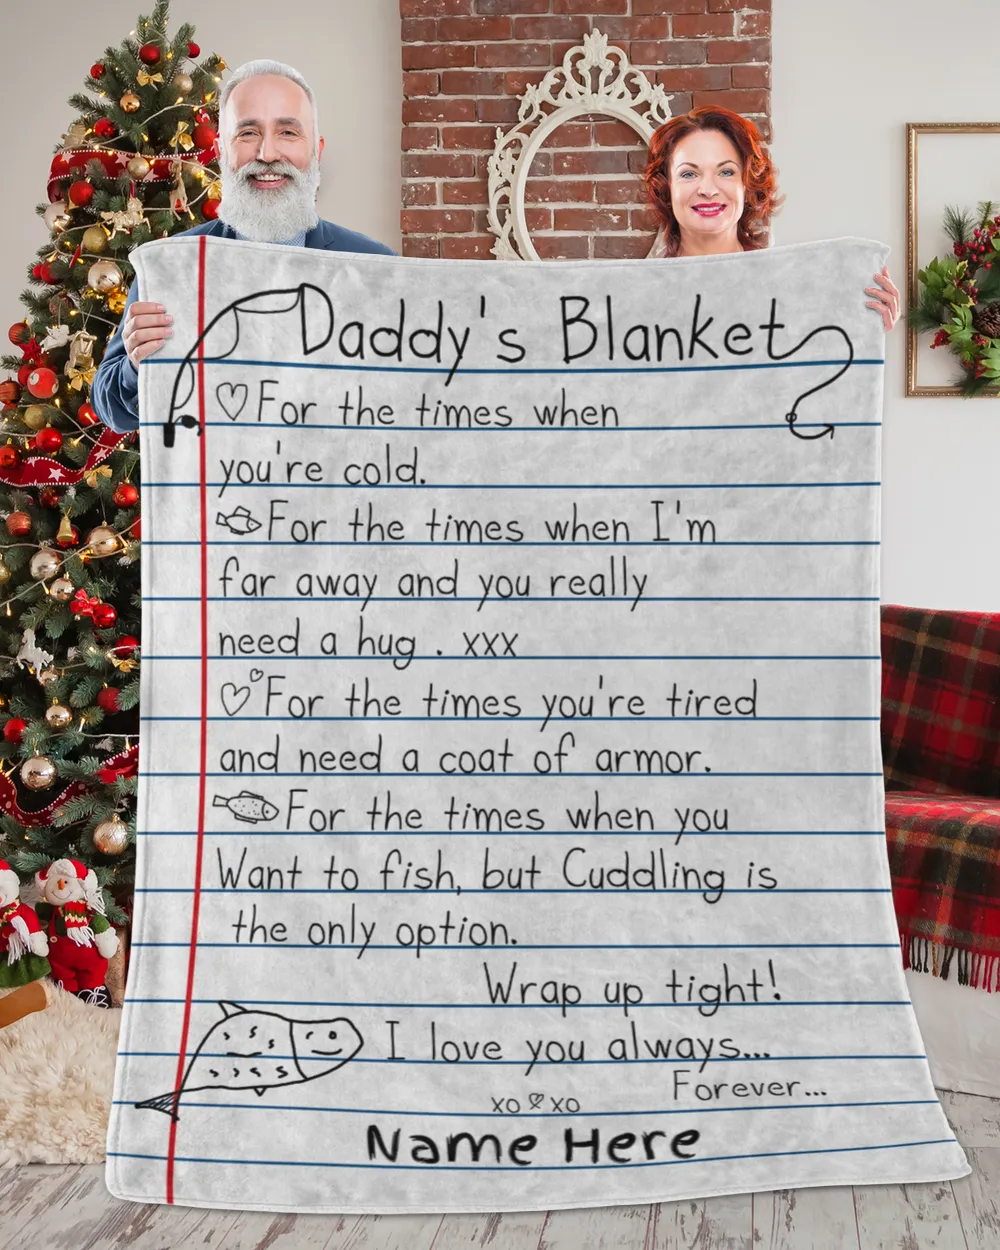 Daddy's Blanket
For the times when
you're cold.
For the times when I'm
far away and you really
need a hug . xxx
For the times you're tired
and need a coat of armor.
For the times when you
Want to fish, but Cuddling is
the only option.
Wrap up tight!
I love you always...
Forever...
xo xo
Name Here